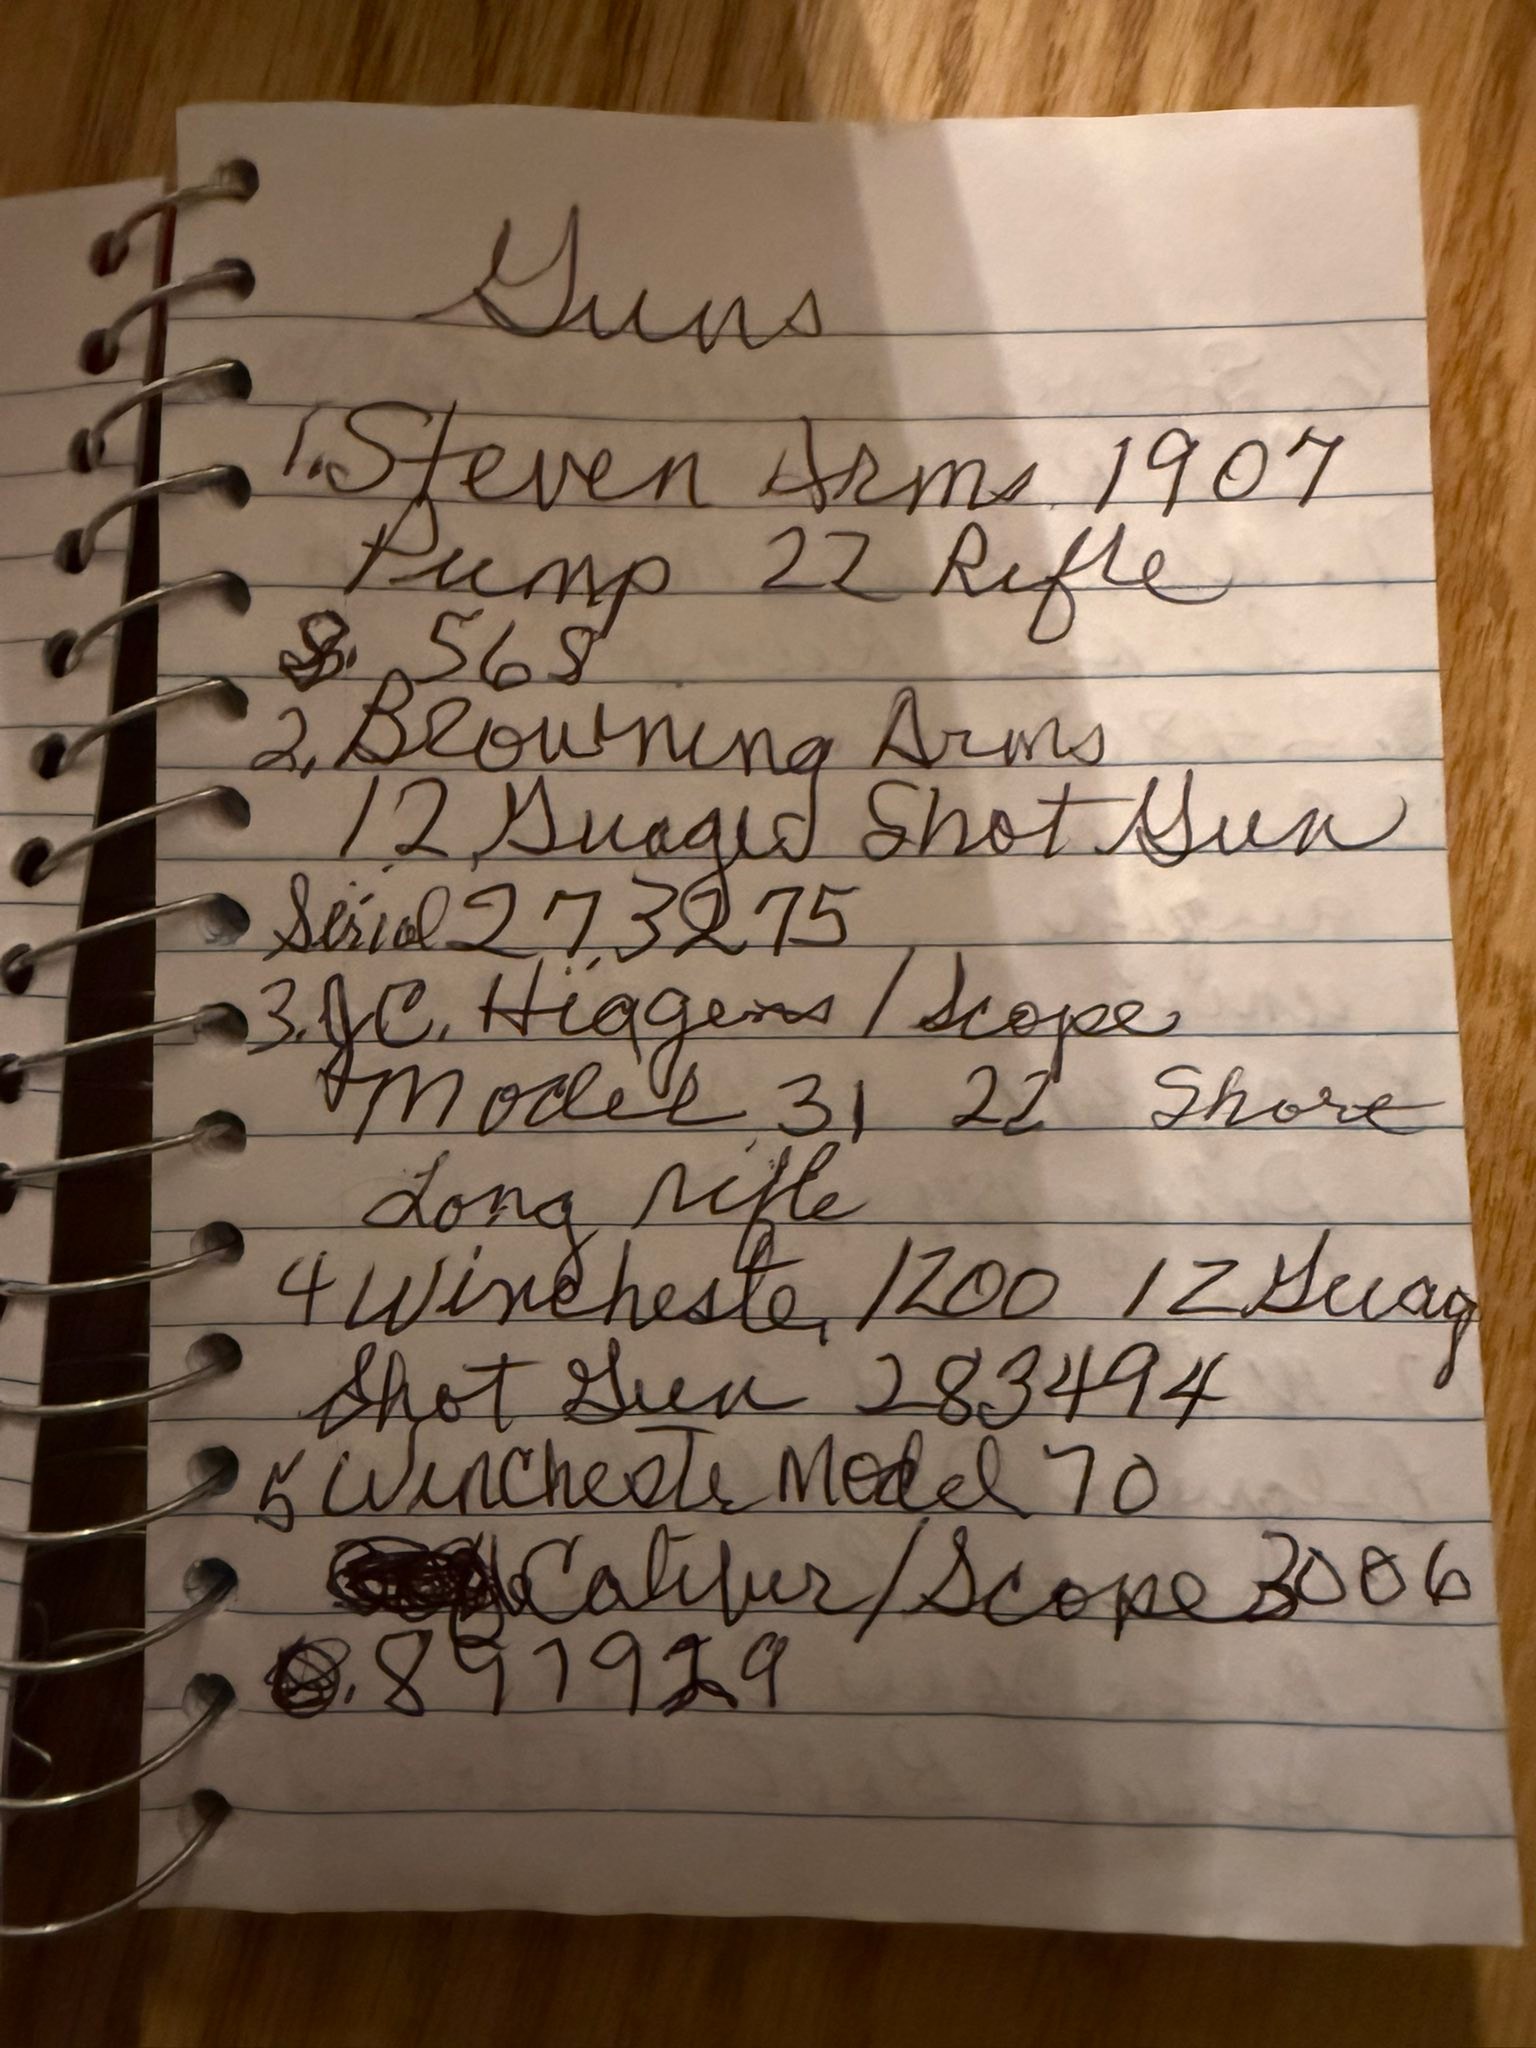 Guns
1. Steven Arms 1907
Pump 22 Rifle
S. 568
2. Browning Arms
12 Guaged Shot Gun
Serial 273275
3. JC. Higgens / Scope
Model 31 22 Shore
Long rifle
4 Winchester 1200 12 Guag
Shot Gun 283494
5 Winchester Model 70
Caliber / Scope 3006
897929